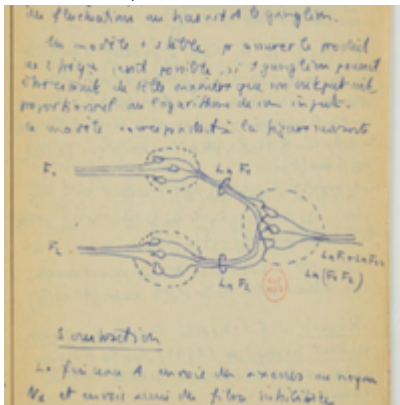 de fluctuation au hasard ds le ganglion.
Un modèle + stable pr assurer le produit
de 2 fréq. serait possible, si 1 ganglion pouvait
fonctionner de telle manière que son output soit
proportionnel au logarithme de son input.
Ce modèle correspondrait à la figure suivante
F1
Ln F1
F2
Ln F2
Ln F1 + Ln F2
Ln (F1 F2)
Soustraction
Le faisceau A envoie des axones au noyau
et envoie aussi des fibres inhibitrices